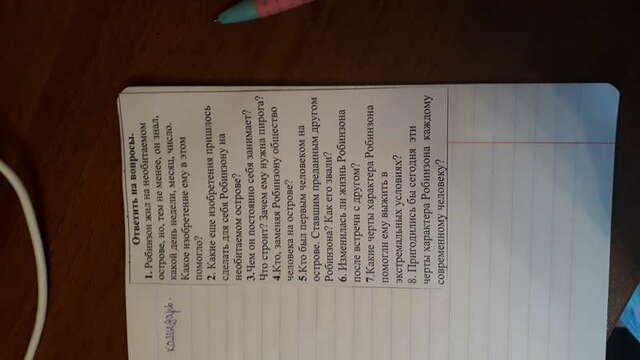 календарь.
Ответить на вопросы.
1. Робинзон жил на необитаемом
острове, но, тем не менее, он знал,
какой день недели, месяц, число.
Какое изобретение ему в этом
помогло?
2. Какие еще изобретения пришлось
сделать для себя Робинзону на
необитаемом острове?
3.Чем он постоянно себя занимает?
Что строит? Зачем ему нужна пирога?
4.Кто, заменяя Робинзону общество
человека на острове?
5.Кто был первым человеком на
острове. Ставшим преданным другом
Робинзона? Как его звали?
6. Изменилась ли жизнь Робинзона
после встречи с другом?
7.Какие черты характера Робинзона
помогли ему выжить в
экстремальных условиях?
8. Пригодились бы сегодня эти
черты характера Робинзона каждому
современному человеку?